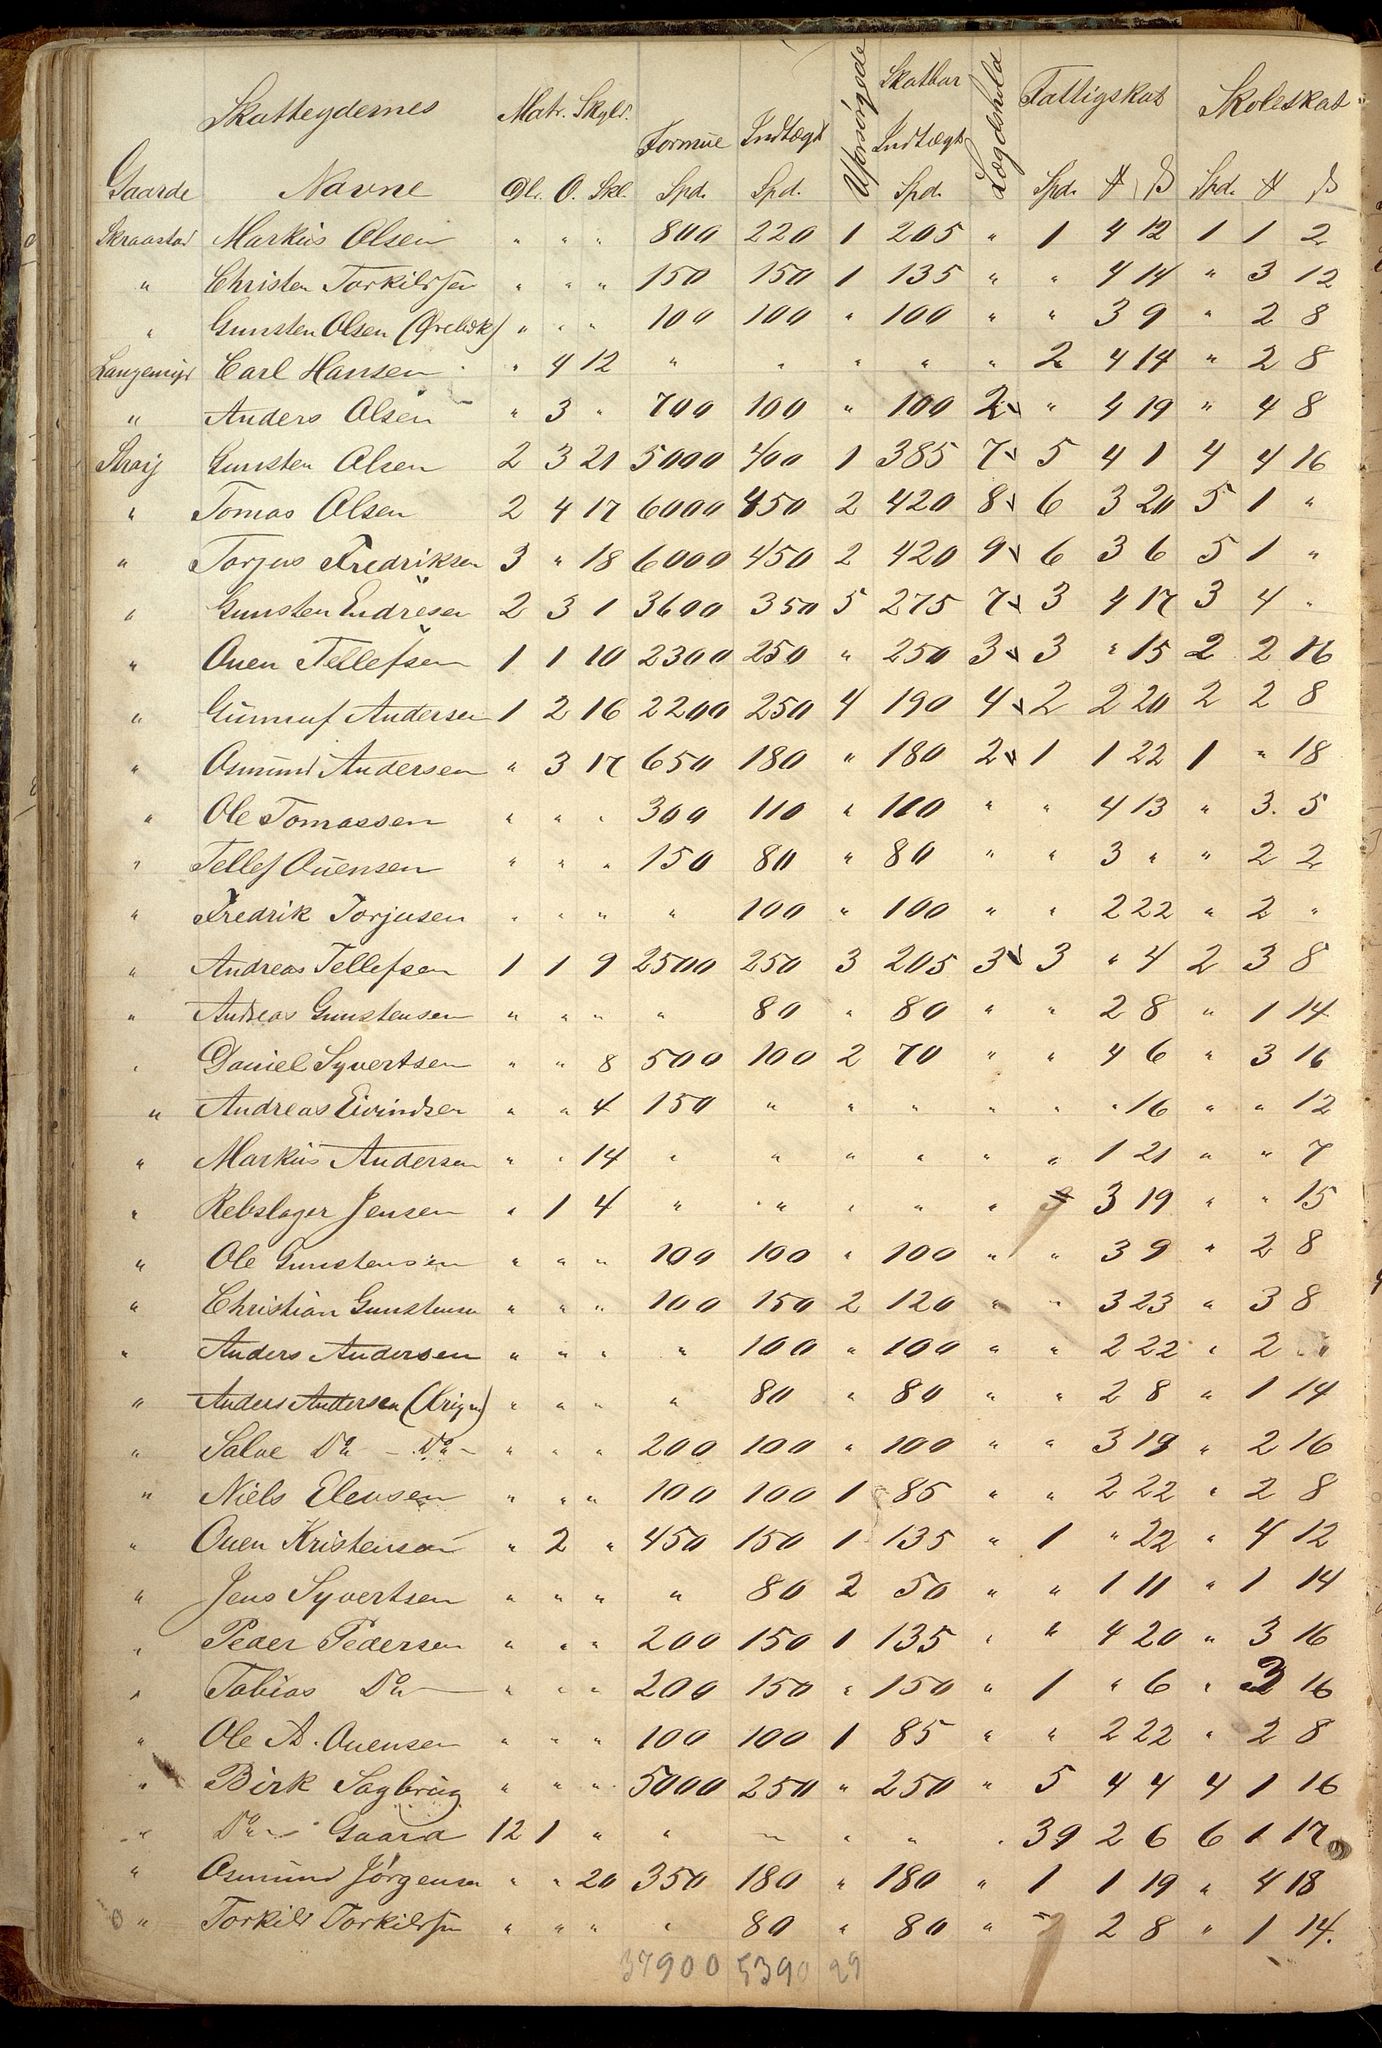 Skatteydernes Matr. Skyld. Formue Indtægt Uforsörgede Skatbar Indtægt Lægdshold Fattigskat Skoleskat
Gaarde Navne Dl. O. Skl. Spd. Spd. Spd. Spd. ß Spd. ß
Skraastad Markus Olsen " " " 800 220 1 205 " 1 4 12 1 1 2
" Christen Torkildsen " " " 150 150 1 135 " " 4 14 " 3 12
" Gunsten Olsen " " " 100 100 " 100 " " 3 9 " 2 8
Langemyr Carl Hansen " 4 12 " " " " " 2 4 14 " 2 8
" Anders Olsen " 3 " 700 100 " 100 2 " 4 19 " 4 8
Gunsten Olsen 2 3 21 5000 400 1 385 7 5 4 1 4 4 16
" Tomas Olsen 2 4 17 6000 450 2 420 8 6 3 20 5 1 "
" Torjus Fredriksen 3 " 18 6000 450 2 420 9 6 3 6 5 1 "
" Gunsten Endresen 2 3 1 3600 350 5 275 7 3 4 17 3 4 "
" Ouen Tellefsen 1 1 10 2300 250 " 250 3 3 " 15 2 2 16
" Gunnuf Andersen 1 2 16 2200 250 4 190 4 2 2 20 2 2 8
" Osmund Andersen " 3 17 650 180 " 180 2 1 1 22 1 " 18
" Ole Tomassen " " " 300 110 " 110 " " 4 13 " 3. 5
" Tellef Ouensen " " " 150 80 " 80 " " 3 " " 2 2
" Fredrik Torjusen " " " " 100 " 100 " " 2 22 " 2 "
" Andreas Tellefsen 1 1 9 2500 250 3 205 3 3 " 4 2 3 8
" Andreas Gunstensen " " " " 80 " 80 " " 2 8 " 1 14
" Daniel Syvertsen " " 8 500 100 2 70 " " 4 6 " 3 16
" Andreas Eivindsen " " 4 150 " " " " " " 16 " " 12
" Markus Andersen " " 14 " " " " " " 1 21 " " 7
" Rebslager Jensen " 1 4 " " " " " 3 19 " " 15
" Ole Gunstensen " " " 100 100 " 100 " " 3 9 " 2 8
" Christian Gunstensen " " " 100 150 2 120 " " 3 23 " 3 8
" Anders Andersen " " " " 100 " 100 " " 2 22 " 2 "
" Anders Andersen " " " " 80 " 80 " " 2 8 " 1 14
" Salve Do - Do - " " " 200 100 " 100 " " 3 19 " 2 16
" Niels Elevsen " " " 100 100 1 85 " " 2 22 " 2 8
" Ouen Kristensen " 2 " 450 150 1 135 " 1 " 22 " 4 12
" Jens Syvertsen " " " " 80 2 50 " " 1 11 " 1 14
" Peder Pedersen " " " 200 150 1 135 " " 4 20 " 3 16
" Tobias Do " " " 200 150 " 150 " 1 " 6 " 3 16
" Ole A. Ouensen " " " 100 100 1 85 " " 2 22 " 2 8
" Birk Sagbrug " " " 5000 250 " 250 " 5 4 4 4 1 16
" Do Gaard 12 1 " " " " " " 39 2 6 6 1 17
" Osmund Jørgensen " " 20 350 180 " 180 " 1 1 19 " 4 18
" Torkild Torkildsen " " " " 80 " 80 " 2 8 " 1 14.
37900 5390 29